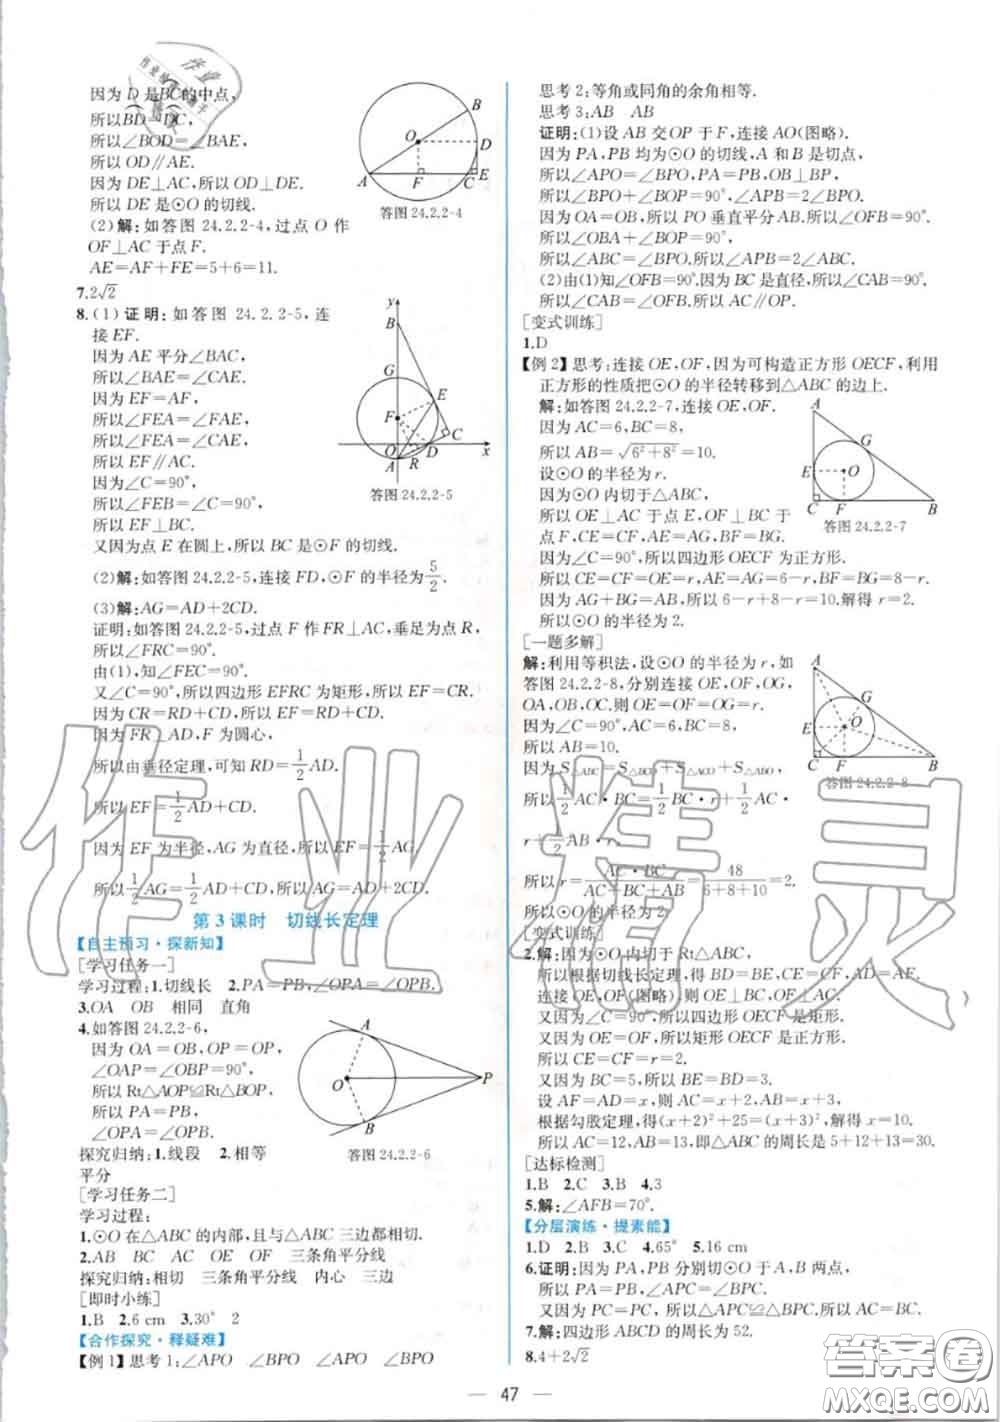 因为D是BC的中点,
所以BD=DC.
所以∠BOD=∠BAE,
所以OD∥AE.
因为DE⊥AC,所以OD⊥DE.
所以DE是⊙O的切线.
(2)解:如答图 24.2.2-4,过点O作
OF⊥AC于点F.
AE=AF+FE=5+6=11.
答图 24.2.2-4
7.2√2
8.(1)证明:如答图 24.2.2-5,连
接EF.
因为AE平分∠BAC,
所以∠BAE=∠CAE.
因为EF=AF,
所以∠FEA=∠FAE,
所以∠FEA=∠CAE,
所以EF∥AC.
因为∠C=90°,
所以∠FEB=∠C=90°,
所以EF⊥BC.
又因为点E在圆上,所以BC是⊙F的切线.
答图 24.2.2-5
(2)解:如答图24.2.2-5,连接FD,⊙F的半径为5/2.
(3)解:AG=AD+2CD.
证明:如答图24.2.2-5,过点F作FR⊥AC,垂足为点R,
所以∠FRC=90°.
由(1),知∠FEC=90°.
又∠C=90°,所以四边形EFRC为矩形,所以EF=CR.
因为CR=RD+CD,所以EF=RD+CD.
因为FR⊥AD,F为圆心,
所以由垂径定理,可知RD=1/2AD.
所以EF=1/2AD+CD.
因为EF为半径,AG为直径,所以EF=1/2AG,
所以1/2AG=1/2AD+CD,所以AG=AD+2CD.
第3课时 切线长定理
【自主预习·探新知】
[学习任务一]
学习过程:1.切线长 2.PA=PB,∠OPA=∠OPB.
3.OA OB 相同 直角
4.如答图24.2.2-6,
因为OA=OB,OP=OP,
∠OAP=∠OBP=90°,
所以Rt△AOP≌Rt△BOP,
所以PA=PB,
∠OPA=∠OPB.
答图24.2.2-6
探究归纳:1.线段 2.相等
平分
[学习任务二]
学习过程:
1.⊙O在△ABC的内部,且与△ABC三边都相切.
2.AB BC AC OE OF 三条角平分线
探究归纳:相切 三条角平分线 内心 三边
[即时小练]
1.B 2.6 cm 3.30° 2
【合作探究·释疑难】
【例1】思考1:∠APO ∠BPO ∠APO ∠BPO
思考2:等角或同角的余角相等.
思考3:AB AB
证明:(1)设AB交OP于F,连接AO(图略).
因为PA,PB均为⊙O的切线,A和B是切点,
所以∠APO=∠BPO,PA=PB,OB⊥BP.
所以∠BPO+∠BOP=90°,∠APB=2∠BPO.
因为OA=OB,所以PO垂直平分AB.所以∠OFB=90°.
所以∠OBA+∠BOP=90°.
所以∠ABC=∠BPO.所以∠APB=2∠ABC.
(2)由(1)知∠OFB=90°.因为BC是直径,所以∠CAB=90°.
所以∠CAB=∠OFB,所以AC∥OP.
[变式训练]
1.D
【例2】思考:连接OE,OF,因为可构造正方形OECF,利用
正方形的性质把⊙O的半径转移到△ABC的边上.
解:如答图24.2.2-7,连接OE,OF.
因为AC=6,BC=8,
所以AB=√(6²+8²)=10.
设⊙O的半径为r.
因为⊙O内切于△ABC,
所以OE⊥AC于点E,OF⊥BC于
点F,CE=CF,AE=AG,BF=BG.
答图24.2.2-7
因为∠C=90°,所以四边形OECF为正方形.
所以CE=CF=OE=r,AE=AG=6-r,BF=BG=8-r.
因为AG+BG=AB,所以6-r+8-r=10.解得r=2.
所以⊙O的半径为2.
[一题多解]
解:利用等积法,设⊙O的半径为r,如
答图24.2.2-8,分别连接OE,OF,OG,
OA,OB,OC.则OE=OF=OG=r.
因为∠C=90°,AC=6,BC=8,
所以AB=10.
因为S△ABC=S△BCO+S△ACO+S△ABO,
答图24.2.2-8
所以1/2AC·BC=1/2BC·r+1/2AC·
r+1/2AB·r.
所以r=AC·BC/(AC+BC+AB)=48/(6+8+10)=2.
所以⊙O的半径为2.
[变式训练]
2.解:因为⊙O内切于Rt△ABC,
所以根据切线长定理,得BD=BE,CE=CF,AD=AF.
连接OE,OF(图略),则OE⊥BC,OF⊥AC.
又因为∠C=90°,所以四边形OECF是矩形.
又因为OE=OF,所以矩形OECF是正方形.
所以CE=CF=r=2.
又因为BC=5,所以BE=BD=3.
设AF=AD=x,则AC=x+2,AB=x+3.
根据勾股定理,得(x+2)²+25=(x+3)²,解得x=10.
所以AC=12,AB=13,即△ABC的周长是5+12+13=30.
[达标检测]
1.B 2.C 3.B 4.3
5.解:∠AFB=70°.
【分层演练·提素能】
1.D 2.B 3.C 4.65° 5.16 cm
6.证明:因为PA,PB分别切⊙O于A,B两点,
所以PA=PB,∠APC=∠BPC.
又因为PC=PC,所以△APC≌△BPC.所以AC=BC.
7.解:四边形ABCD的周长为52.
8.4+2√2
47
作业精灵
答案圈
MXQE.COM